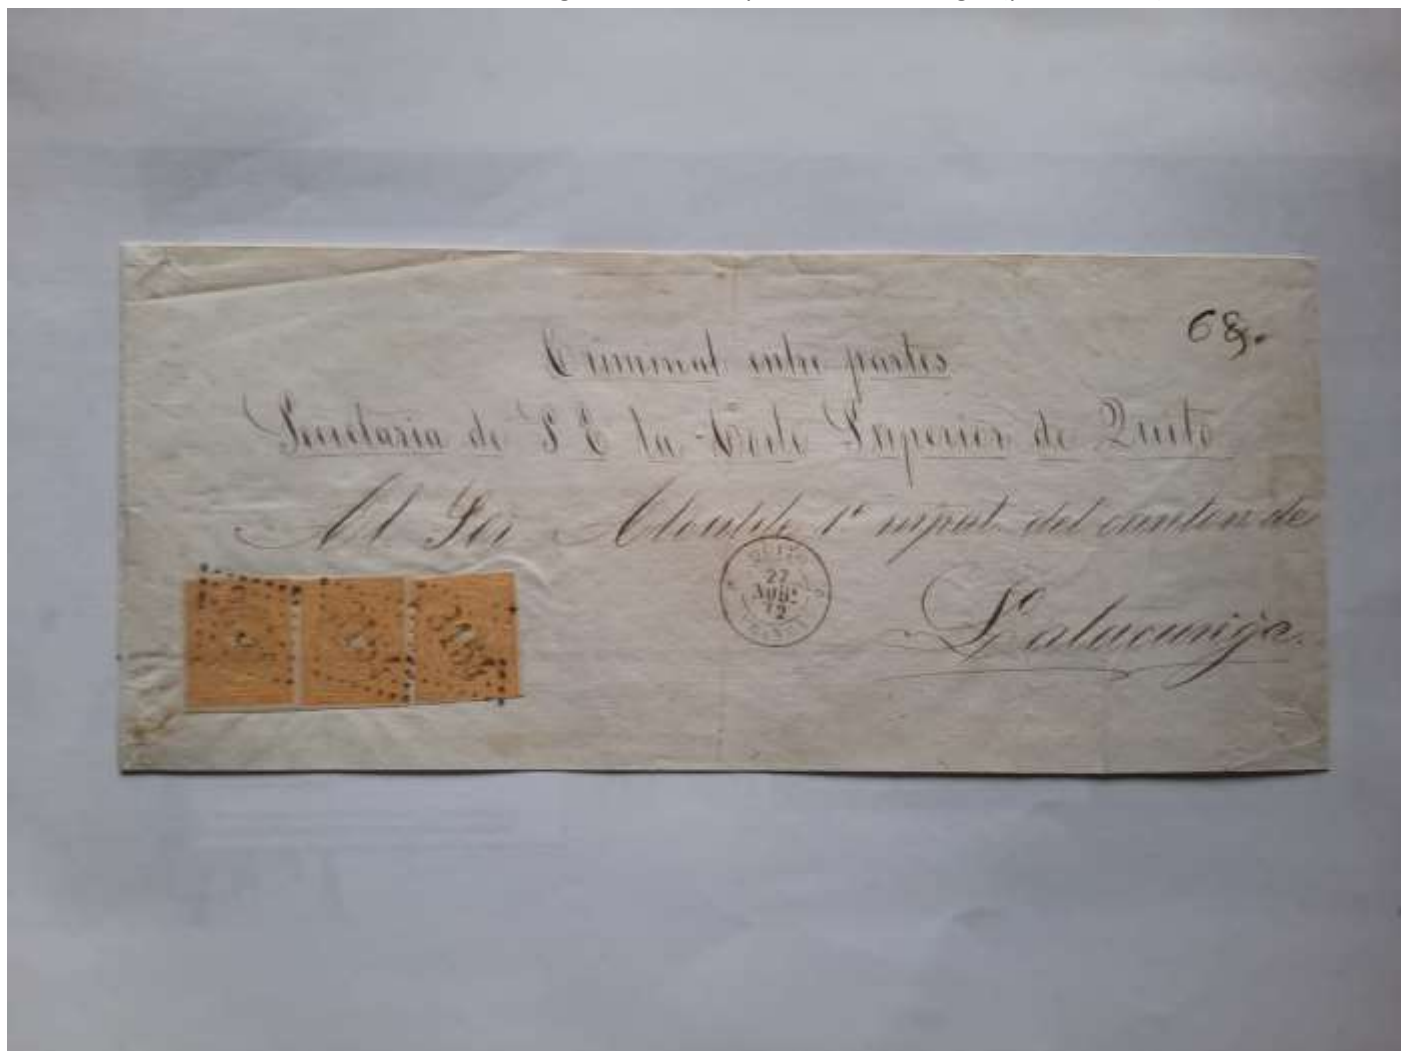 68.
Criminal entre partes
Secretaria de S E la Corte Superior de Quito
Al Sor Alcalde 1º mpal. del canton de
QUITO
27
72
Latacunga.